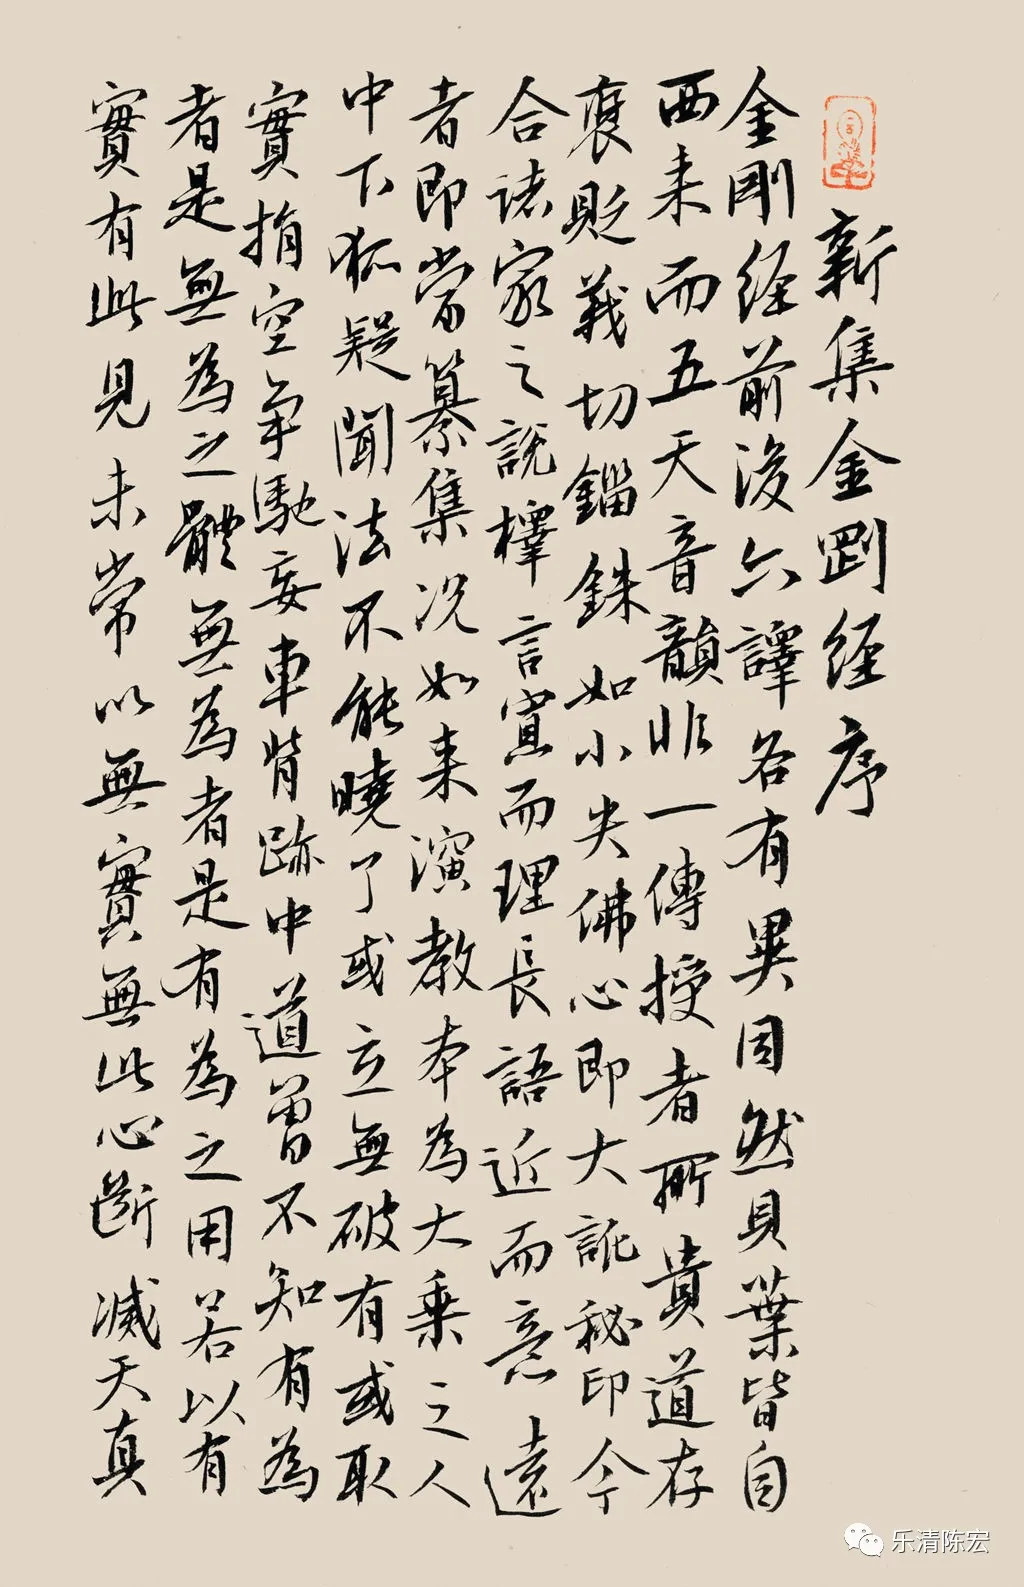 新集金剛經序
金剛經前後六譯各有異同然貝葉皆自
西来而五天音韻非一傳授者所貴道存
襃貶義切錙銖如小失佛心即大訛秘印今
合諸家之說擇言寡而理長語近而意遠
者即當纂集况如来演教本為大乗之人
中下狐疑聞法不能曉了或立無破有或取
實捐空争馳妄車背跡中道曽不知有為
者是無為之體無為者是有為之用若以有
實有此見未常以無實無此心斷滅天真
乐清陈宏